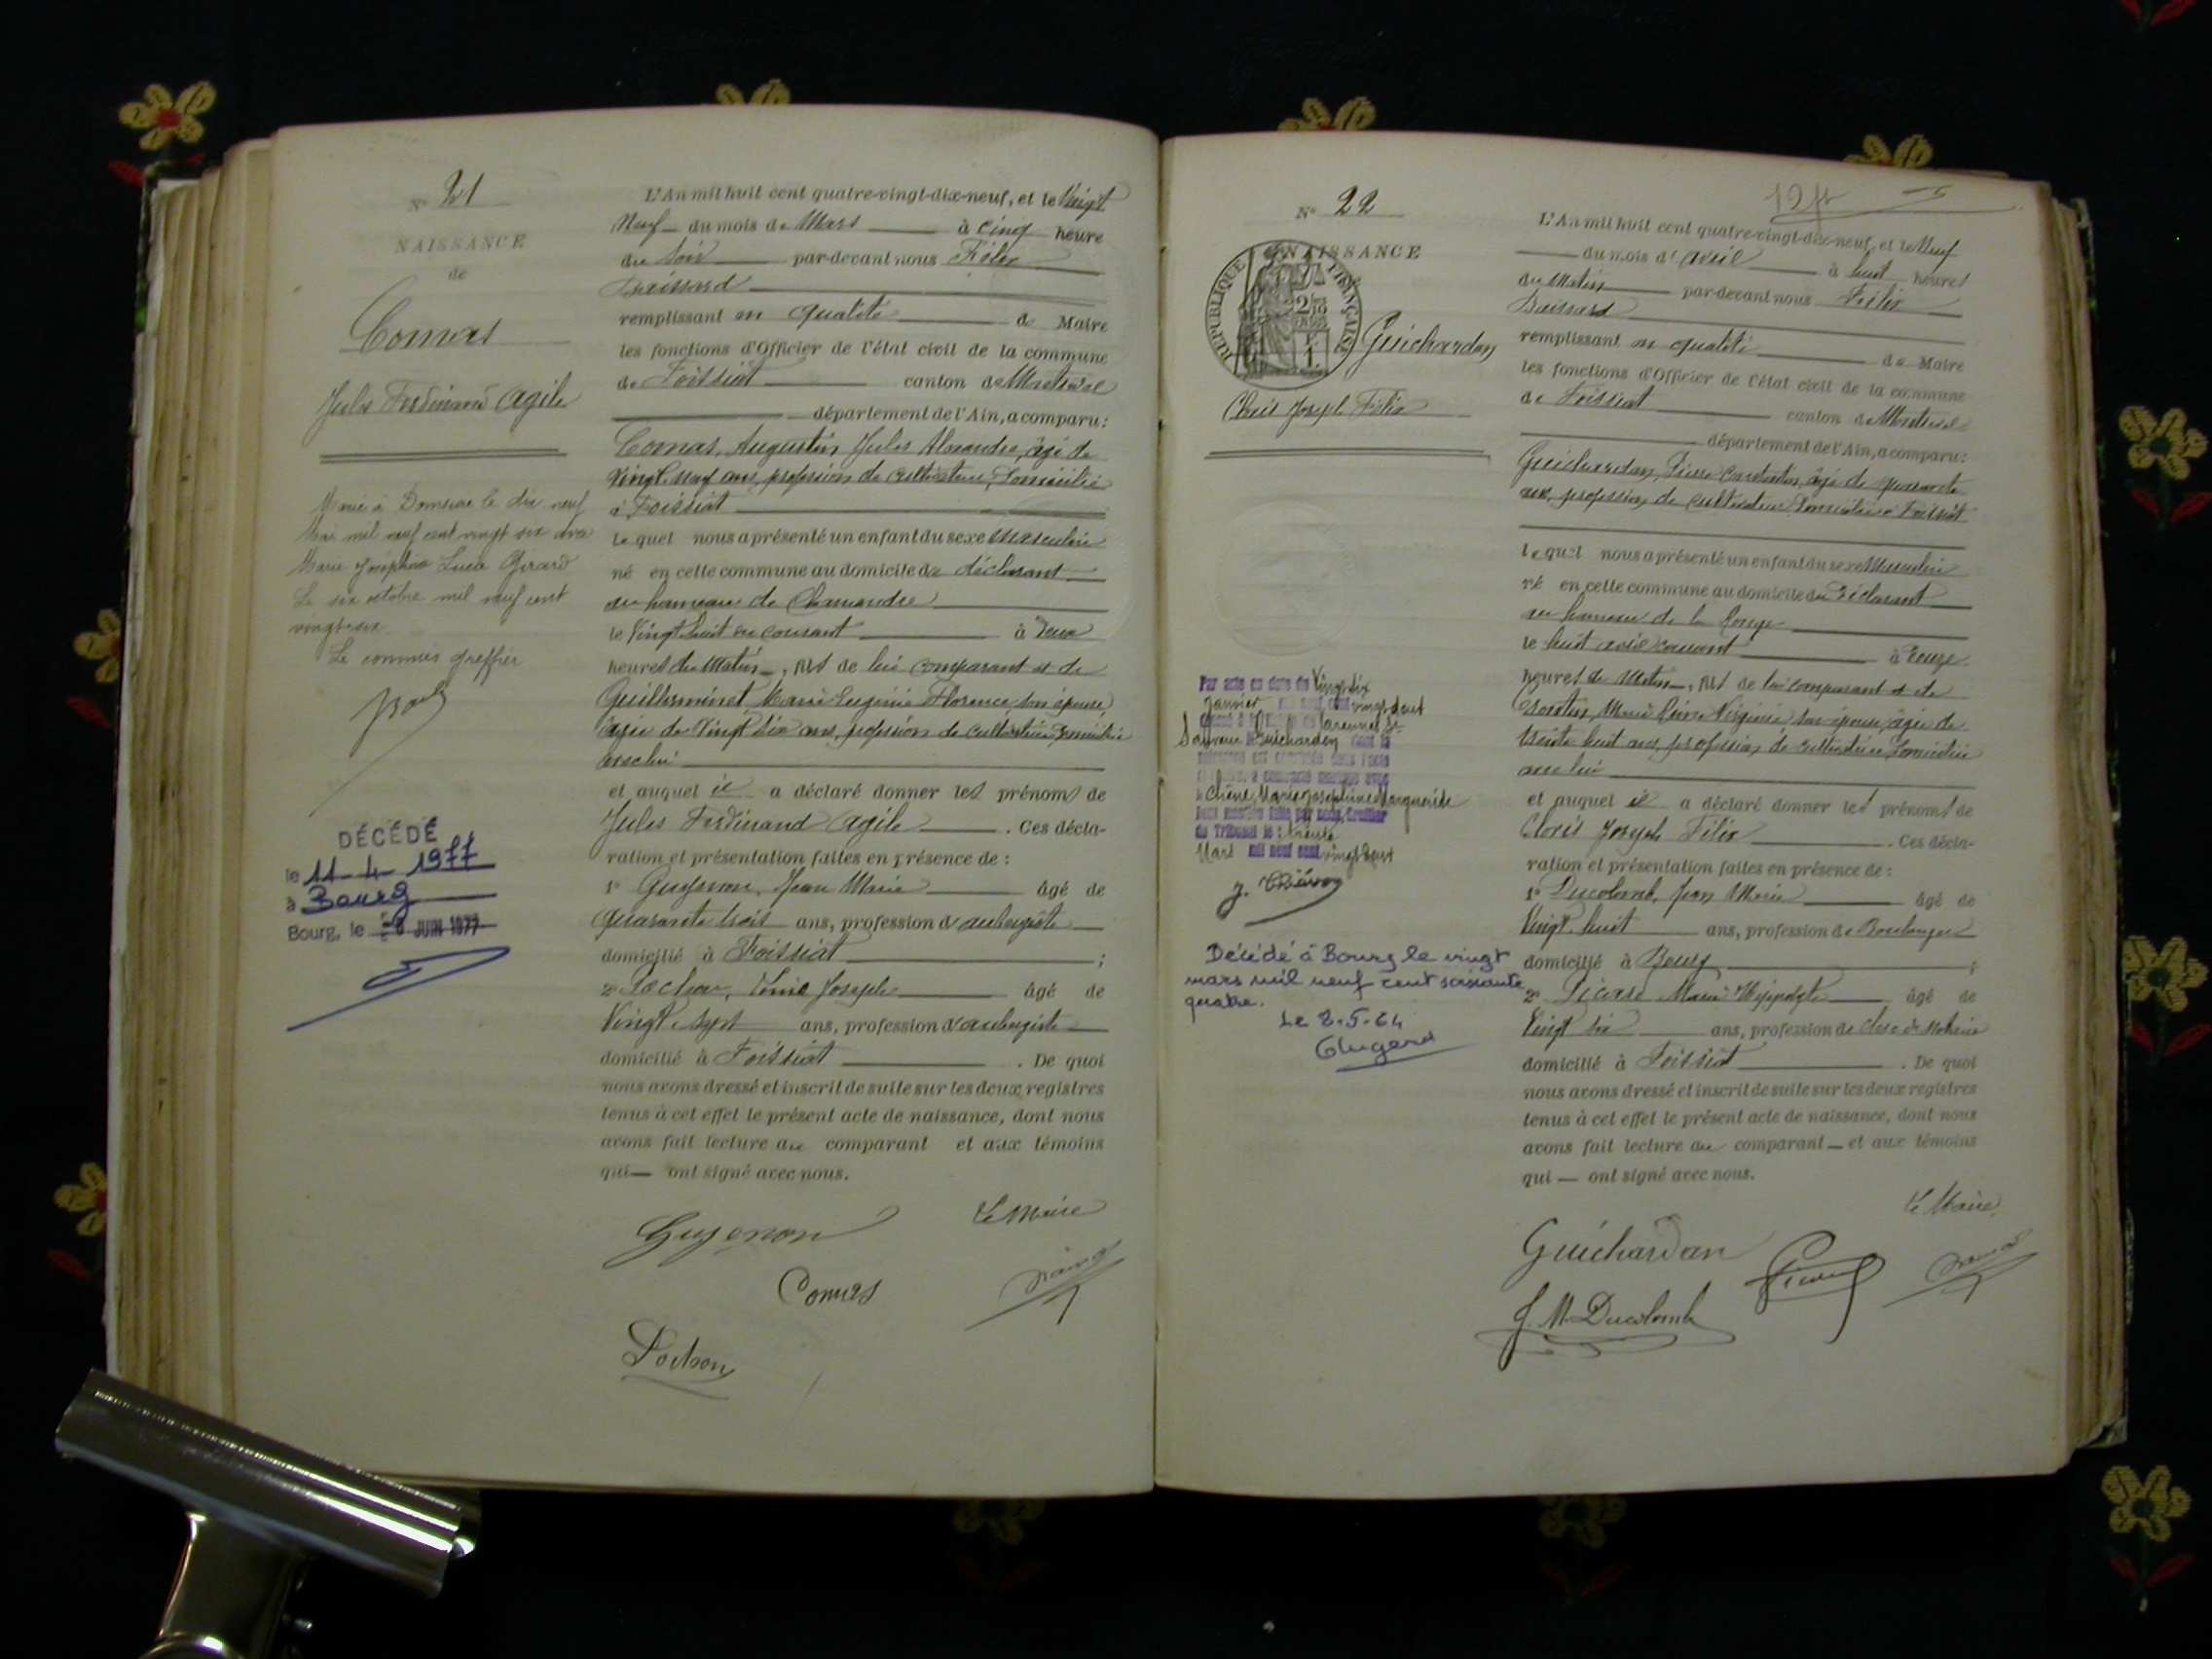 N° 21
NAISSANCE
de
Comas
Jules Ferdinand Agile
Marié à Domsure le dix neuf
Mai mil neuf cent vingt six avec
Marie Joséphine Luca Girard
Le six octobre mil neuf cent
vingt-six
Le commis greffier
DÉCÉDÉ
le 11-4-1977
à Bourg
Bourg, le JUIN 1977
L'An mil huit cent quatre-vingt-dix-neuf, et le Vingt
Neuf du mois de Mars à Cinq heure
du Soir par-devant nous Félix
remplissant en qualité de Maire
les fonctions d'Officier de l'état civil de la commune
de Foissiat canton de Montrevel
département de l'Ain, a comparu:
Comas, Augustin Jules Alexandre, âgé de
vingt-neuf ans, profession de cultivateur, domicilié
à Foissiat
lequel nous a présenté un enfant du sexe Masculin
né en cette commune au domicile du déclarant
au hameau de Chamandre
le Vingt huit du courant à Deux
heures du Matin, fils de lui comparant et de
Guilleminet, Marie Eugénie Florence, son épouse
âgée de Vingt six ans, profession de cultivatrice, domiciliée
avec lui
et auquel il a déclaré donner les prénoms de
Jules Ferdinand Agile. Ces décla-
ration et présentation faites en présence de :
1° Guyenon, Jean Marie âgé de
quarante trois ans, profession d'aubergiste
domicilié à Foissiat ;
2° Pochon, Joseph âgé de
Vingt sept ans, profession d'aubergiste
domicilié à Foissiat. De quoi
nous avons dressé et inscrit de suite sur les deux registres
tenus à cet effet le présent acte de naissance, dont nous
avons fait lecture au comparant et aux témoins
qui — ont signé avec nous.
Le Maire
Guyenon
Comas
Pochon
N° 22
NAISSANCE
REPUBLIQUE FRANÇAISE
Guichardan
Cloris Joseph Félix
Par acte en date du Vingt-six
Janvier mil neuf cent vingt deux
Guichardan dont la
naissance est constatée dans l'acte
ci-contre a contracté mariage avec
Chêne Marie Joséphine Marguerite
du Tribunal le trente
Mars mil neuf cent vingt deux
Décédé à Bourg le vingt
mars mil neuf cent soixante
quatre.
Le 2.5.64
L'An mil huit cent quatre-vingt-dix-neuf, et le Neuf
du mois d'Avril à huit heures
du Matin par-devant nous Félix
remplissant en qualité de Maire
les fonctions d'Officier de l'état civil de la commune
de Foissiat canton de Montrevel
département de l'Ain, a comparu:
Guichardan, Pierre Constantin, âgé de quarante
ans, profession de cultivateur, domicilié à Foissiat
lequel nous a présenté un enfant du sexe Masculin
né en cette commune au domicile du déclarant
au hameau de la
le huit avril courant à onze
heures du Matin, fils de lui comparant et de
Marie Virginie son épouse, âgée de
trente huit ans, profession de cultivatrice, domiciliée
avec lui
et auquel il a déclaré donner les prénoms de
Cloris Joseph Félix. Ces décla-
ration et présentation faites en présence de :
1° Ducolomb, Jean Marie âgé de
Vingt huit ans, profession de Boulanger
domicilié à Bourg ;
2° Picard Marie Hippolyte âgé de
Vingt six ans, profession de clerc de Notaire
domicilié à Foissiat. De quoi
nous avons dressé et inscrit de suite sur les deux registres
tenus à cet effet le présent acte de naissance, dont nous
avons fait lecture au comparant — et aux témoins
qui — ont signé avec nous.
Le Maire,
Guichardan
J. M. Ducolomb